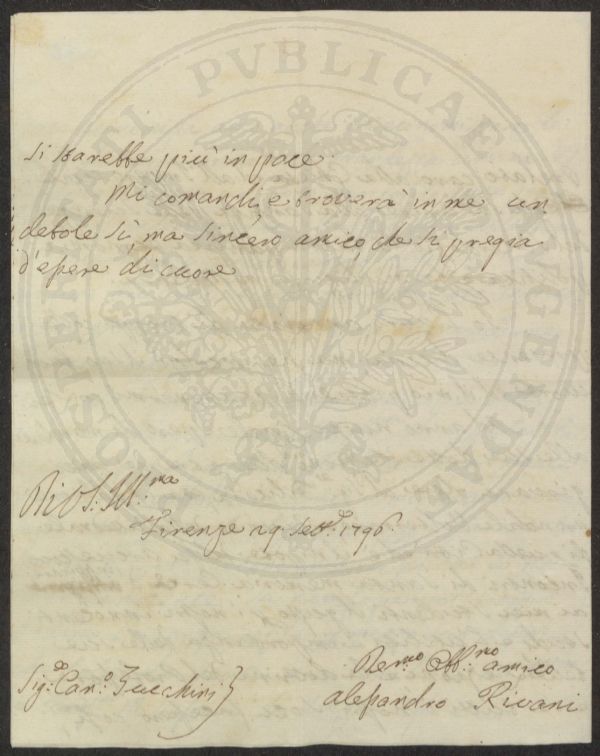 si starebbe più in pace.
Mi comandi, e troverà in me un
debole sì, ma sincero amico, che si pregia
d'essere di cuore
Di V. S. Ill.ma
Firenze 29 Sett.e 1796.
Dev.mo Obb.mo amico
Alessandro Rivani
Sig.e Can.o Zucchini